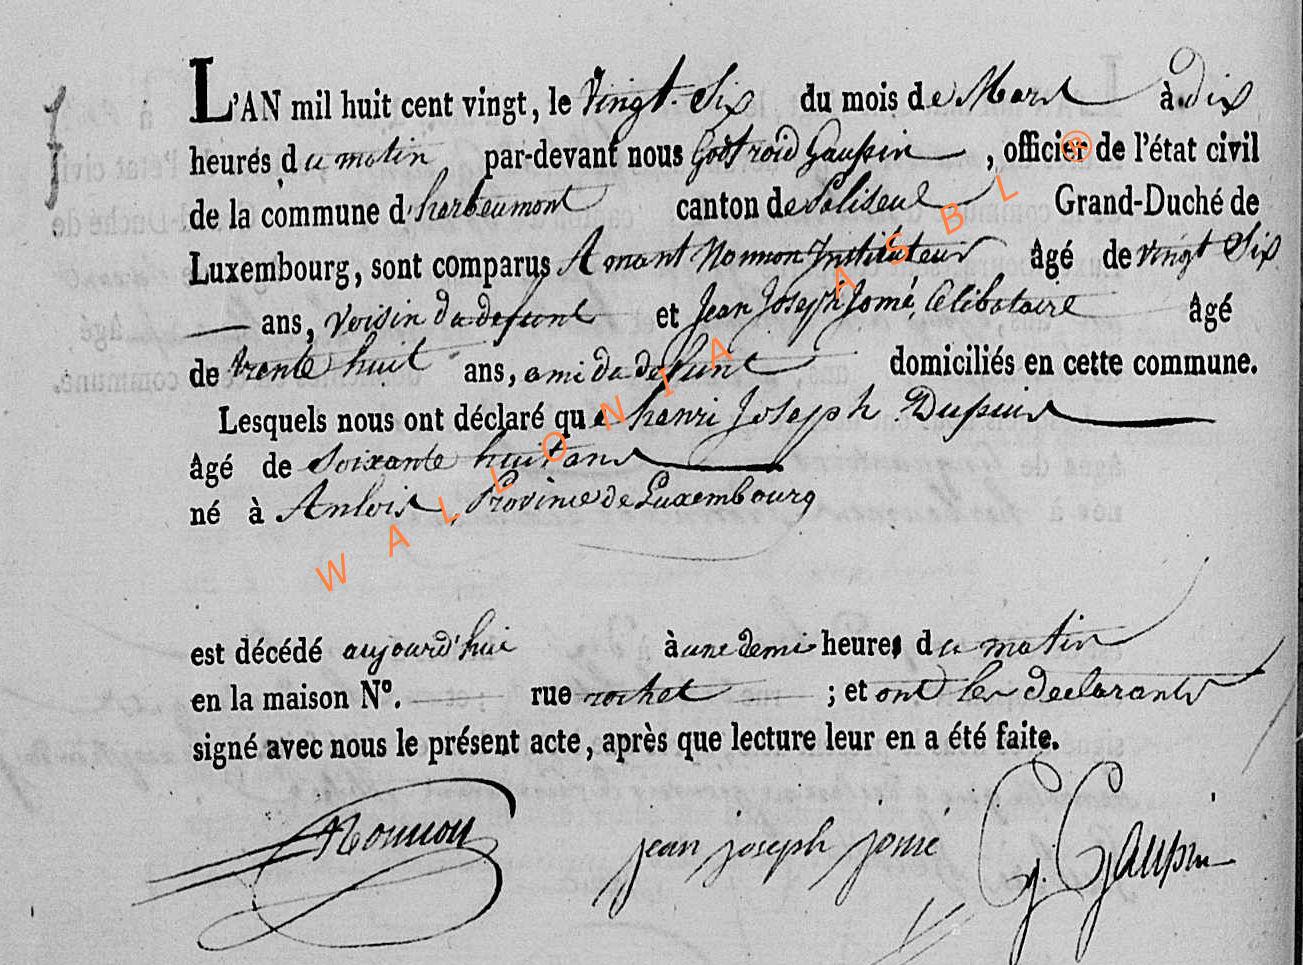 L'AN mil huit cent vingt, le Vingt-Six du mois de Mars à dix
heures du matin par-devant nous Godfroid Gaussin, officier de l'état civil
de la commune d'herbeumont canton de Paliseul Grand-Duché de
Luxembourg, sont comparus Amant Nonnon Instituteur âgé de vingt Six
— ans, voisin du defunt et Jean Joseph Jomé, Celibataire âgé
de trente huit ans, ami du defunt domiciliés en cette commune.
Lesquels nous ont déclaré que henri Joseph Dupuis
âgé de Soixante huit ans
né à Anlois, Province de Luxembourg
est décédé aujourd'hui à une demi heure du matin
en la maison N°. — rue rochet ; et ont les declarants
signé avec nous le présent acte, après que lecture leur en a été faite.
Nonnon jean joseph jomé G. Gaussin
WALLONIA ASBL ®